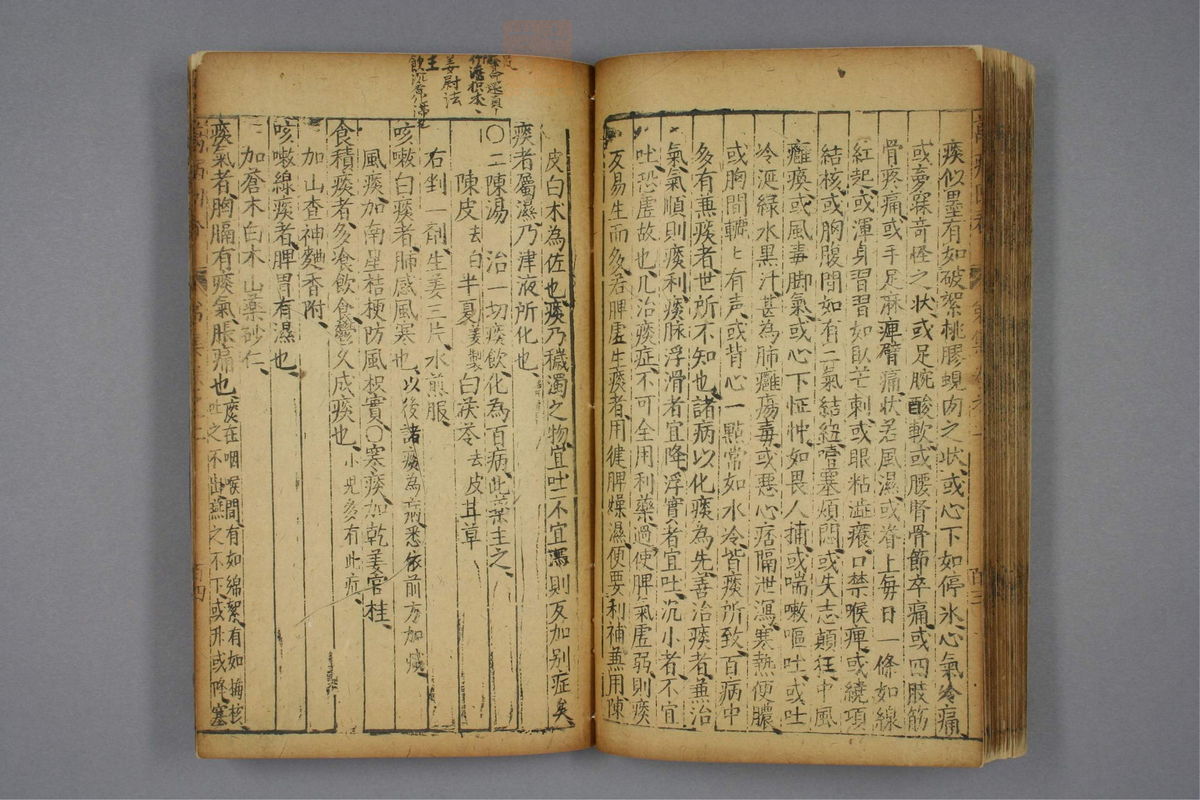 痰似墨有如破絮桃膠蜆肉之狀或心下如停氷心氣冷痛
或夢寐奇怪之狀或足腕酸軟或腰脊骨節卒痛或四肢筋
骨疼痛或手足麻痺臂痛状若風濕或脊上每日一條如線
紅起或渾身習習如臥芒刺或眼粘澁癢口禁喉痺或繞項
結核或胸腹間如有二氣結紐噎塞煩悶或失志顛狂中風
癱瘓或風毒脚氣或心下怔忡如畏人捕或喘嗽嘔吐或吐
冷涎緑水黒汁甚為肺癰瘍毒或惡心痞膈泄瀉寒熱便膿
或胸間轆々有声或背心一點常如水冷皆痰所致百病中
多有兼痰者世所不知也諸病以化痰為先善治痰者兼治
氣氣順則痰利痰脉浮滑者宜降浮實者宜吐沉小者不宜
吐恐虚故也凡治痰症不可全用利藥過使脾氣虚弱則痰
反易生而多若脾虚生痰者用健脾燥濕便要利補兼用陳
皮白术為佐也痰乃穢濁之物宜吐不宜瀉則反加别症矣
痰者屬濕乃津液所化也
〇二陳湯 治一切痰飲化為百病此藥主之
陳皮去白半夏姜製白茯苓去皮甘草
右剉一劑生姜三片水煎服
咳嗽白痰者肺感風寒也以後諸痰為病悉依前方加減
風痰加南星桔梗防風枳實〇寒痰加乾姜官桂
食積痰者多飡飲食鬱久成痰也小児多有此症
加山查神麯香附
咳嗽線痰者脾胃有濕也
加蒼术白术山藥砂仁
痰氣者胸膈有痰氣脹痛也痰在咽喉間有如綿絮有如梅核
吐之不出嚥之不下或升或降塞
姜尉法